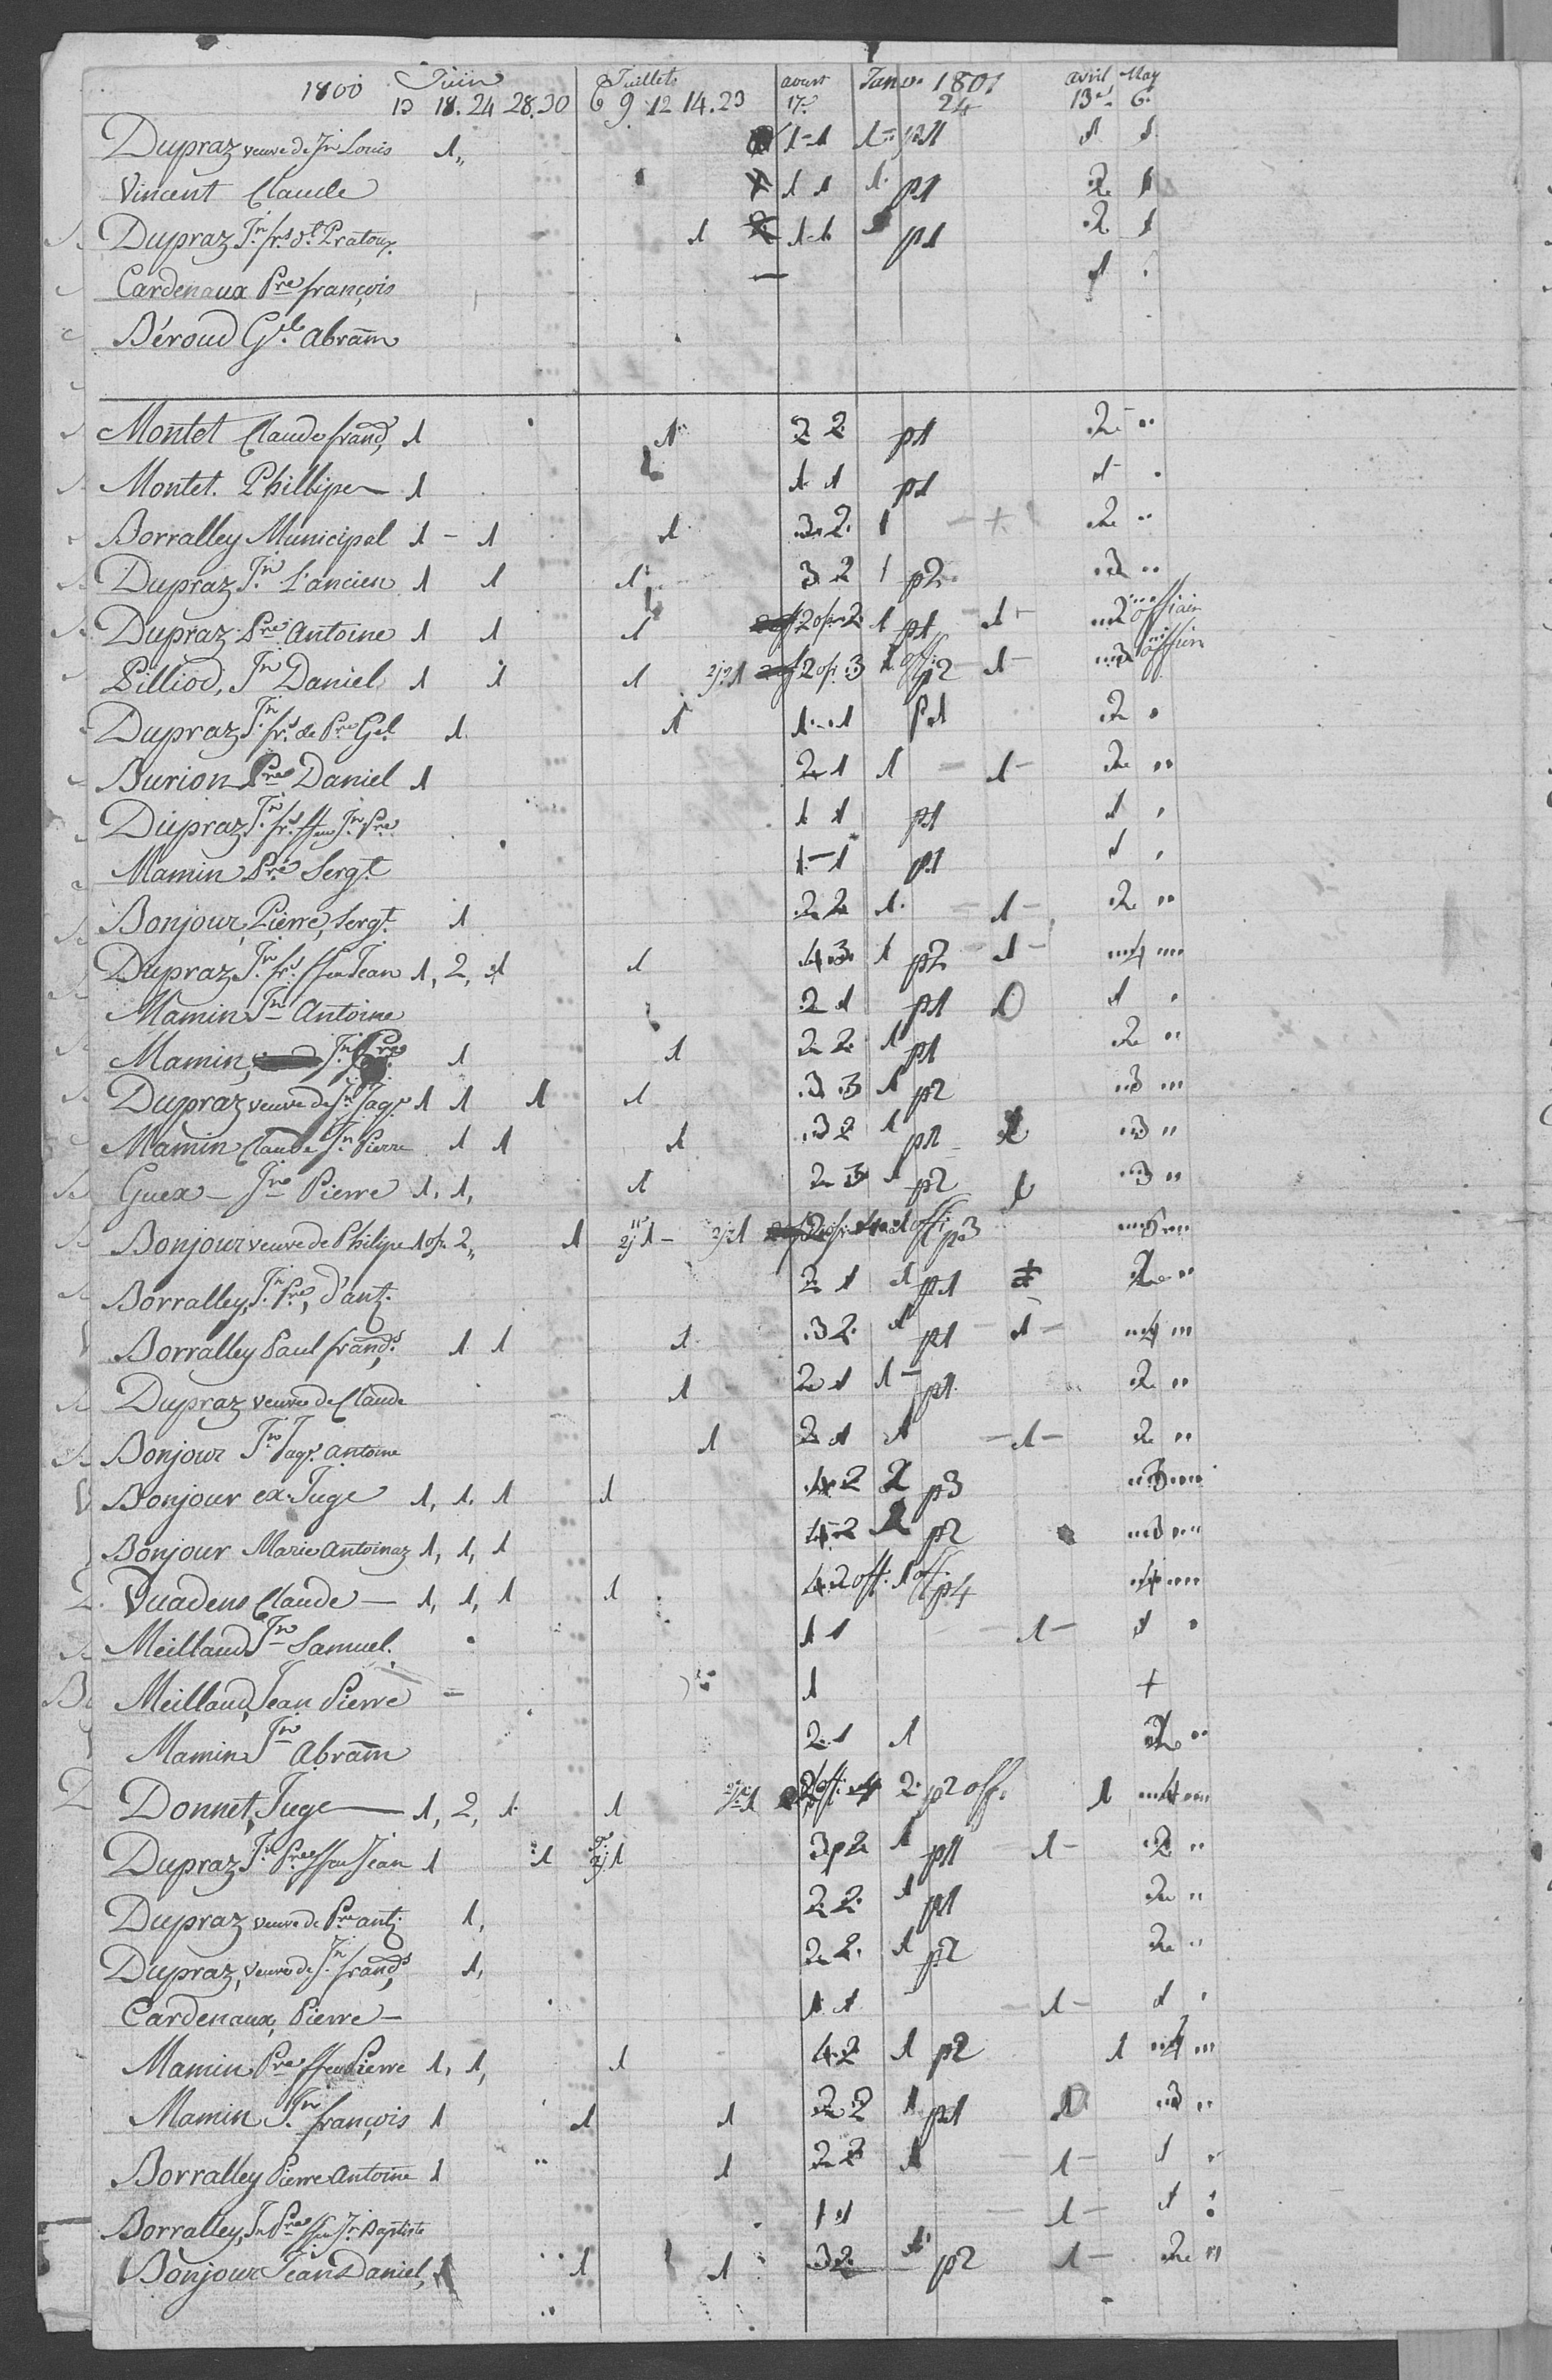 1800 Juin Juillet aoust Janv. 1801 avril May
13 18. 24 28. 30 6 9 12 14. 23 17. 24 13e 6.
Dupraz veuve de Jn Louis 1,, 1-1 1 p1 1 1
Vincent Claude 1 1 1. p1 2 1
Dupraz Jn frs dt Pratoux 1 2 1-1 p1 2 1
Cardenaux Pre françois — 1
Béroud Gel. Abram
Montet Claude frand 1 1 2 2 p1 2 ..
Montet. Phillipe 1 1 1 p1 1 .
Borralley Municipal 1 - 1 1 3. 2. 1 - + 2 ..
Dupraz Jn L'ancien 1 1 1 3 2 1 p2 3 ..
Dupraz Pre Antoine 1 1 1 2 of. 2 1 p1 - 1 - 2 officier
Pilliod, Jn Daniel 1 1 1 2j. 1 2 of. 3 1 off. p2 1 - 3 officier
Dupraz Jn frs de Pre Gel 1 1 1..1 p1 2 .
Burion Pre Daniel 1 2 1 1 - 1 - 2 ..
Dupraz Jn frs ffeu Jn Pre 1 1 p1 1 ,
Mamin Pre Sergt 1-1 p1 1 ,
Bonjour, Pierre, Sergt. 1 2 2 1. - 1 - 2 ..
Dupraz Jn frs ffeu Jean 1, 2, 1 1 4 3 1 p2 - 1 - 4 ....
Mamin Jn Antoine 2 1 p1 1 .
Mamin, Jn Pre 1 1 2 2. 1 p1 2 ..
Dupraz veuve de Jn Jaqs 1 1 1 1 3 3 1 p2 3 ...
Mamin Claude Jn Pierre 1 1 1 3 2 1 3 ..
Guex - Jn Pierre 1. 1, 1 2 3 1 p2 3 ..
Bonjour veuve de Philipe 1 of. 2,, 1 2j 1 - 2j 1 p3
Borralley, Jn Pre, d'ant. 2 1 1 p1 2 ..
Borralley Paul frands 1 1 1 3 2. 1 p1 - 1 - 4 ...
Dupraz veuve de Claude 1 2 1 1 - p1 2 ..
Bonjour Jn Jaqs antoine 1 2 1 1 - 1 - 2 ..
Bonjour ex-Juge 1, 1. 1 1 4 2 2 p3 3 ....
Bonjour Marie Antoinaz 1, 1, 1 4 2 p2 3 ....
Vuadens Claude — 1, 1, 1 1 4 2 off. 1 off. p4 4 ....
Meilland Jn Samuel. 1 1 - 1 - 1 .
Meilland, Jean Pierre - 1 +
Mamin Jn Abram 2.1 1 2 ..
Donnet, Juge — 1, 2, 1. 1 2. p2 off. 1 4
Dupraz Jn Pre ffeu Jean 1 1 2j 1 3 2 1 p1 - 1 - 2 ..
Dupraz veuve de Pre ant. 1, 2 2. 1 p1 2 ..
Dupraz, veuve de Jn frands 1, 2 2. 1 p2 2 ..
Cardenaux, Pierre - 1 1 - 1 - 1 .
Mamin Pre ffeu Pierre 1, 1, 1 4 2 1 p2 1 4 ...
Mamin Jn françois 1 1 1 2 2 1 p1 1 3 ..
Borralley Pierre Antoine 1 1 2 2 1 - 1 - 1
Borralley, Jn Pre ffeu Jn Baptiste 1 1 - 1 - 1
Bonjour Jean Daniel, 1 1 1 3 2. 1 p2 1 - 2 ..